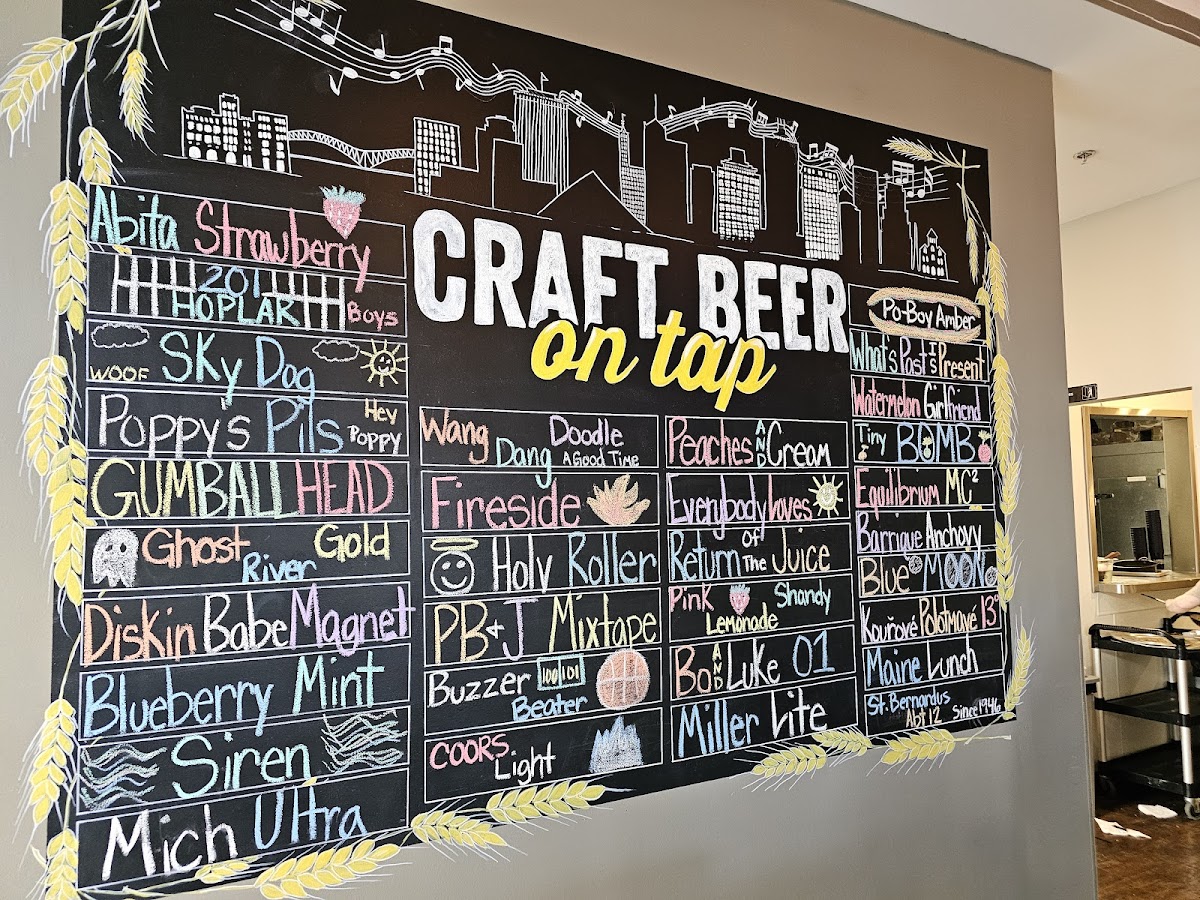 CRAFT BEER
on tap
Abita Strawberry
201
HOPLAR Boys
WOOF Sky Dog
Poppy's Pils Hey Poppy
GUMBALLHEAD
Ghost River Gold
Diskin Babe Magnet
Blueberry Mint
Siren
Mich Ultra
Wang Dang Doodle
A Good Time
Fireside
Holy Roller
PB&J Mixtape
Buzzer Beater
COORS Light
Peaches AND Cream
Everybody Loves
Return OF The Juice
Pink Lemonade Shandy
Bo AND Luke 01
Miller Lite
Po-Boy Amber
What's Past Is Present
Watermelon Girlfriend
Tiny BOMB
Equilibrium MC²
Barrique Anchovy
Blue MOON
Kouřové Polotmavé 13°
Maine Lunch
St. Bernardus
Abt 12 Since 1946